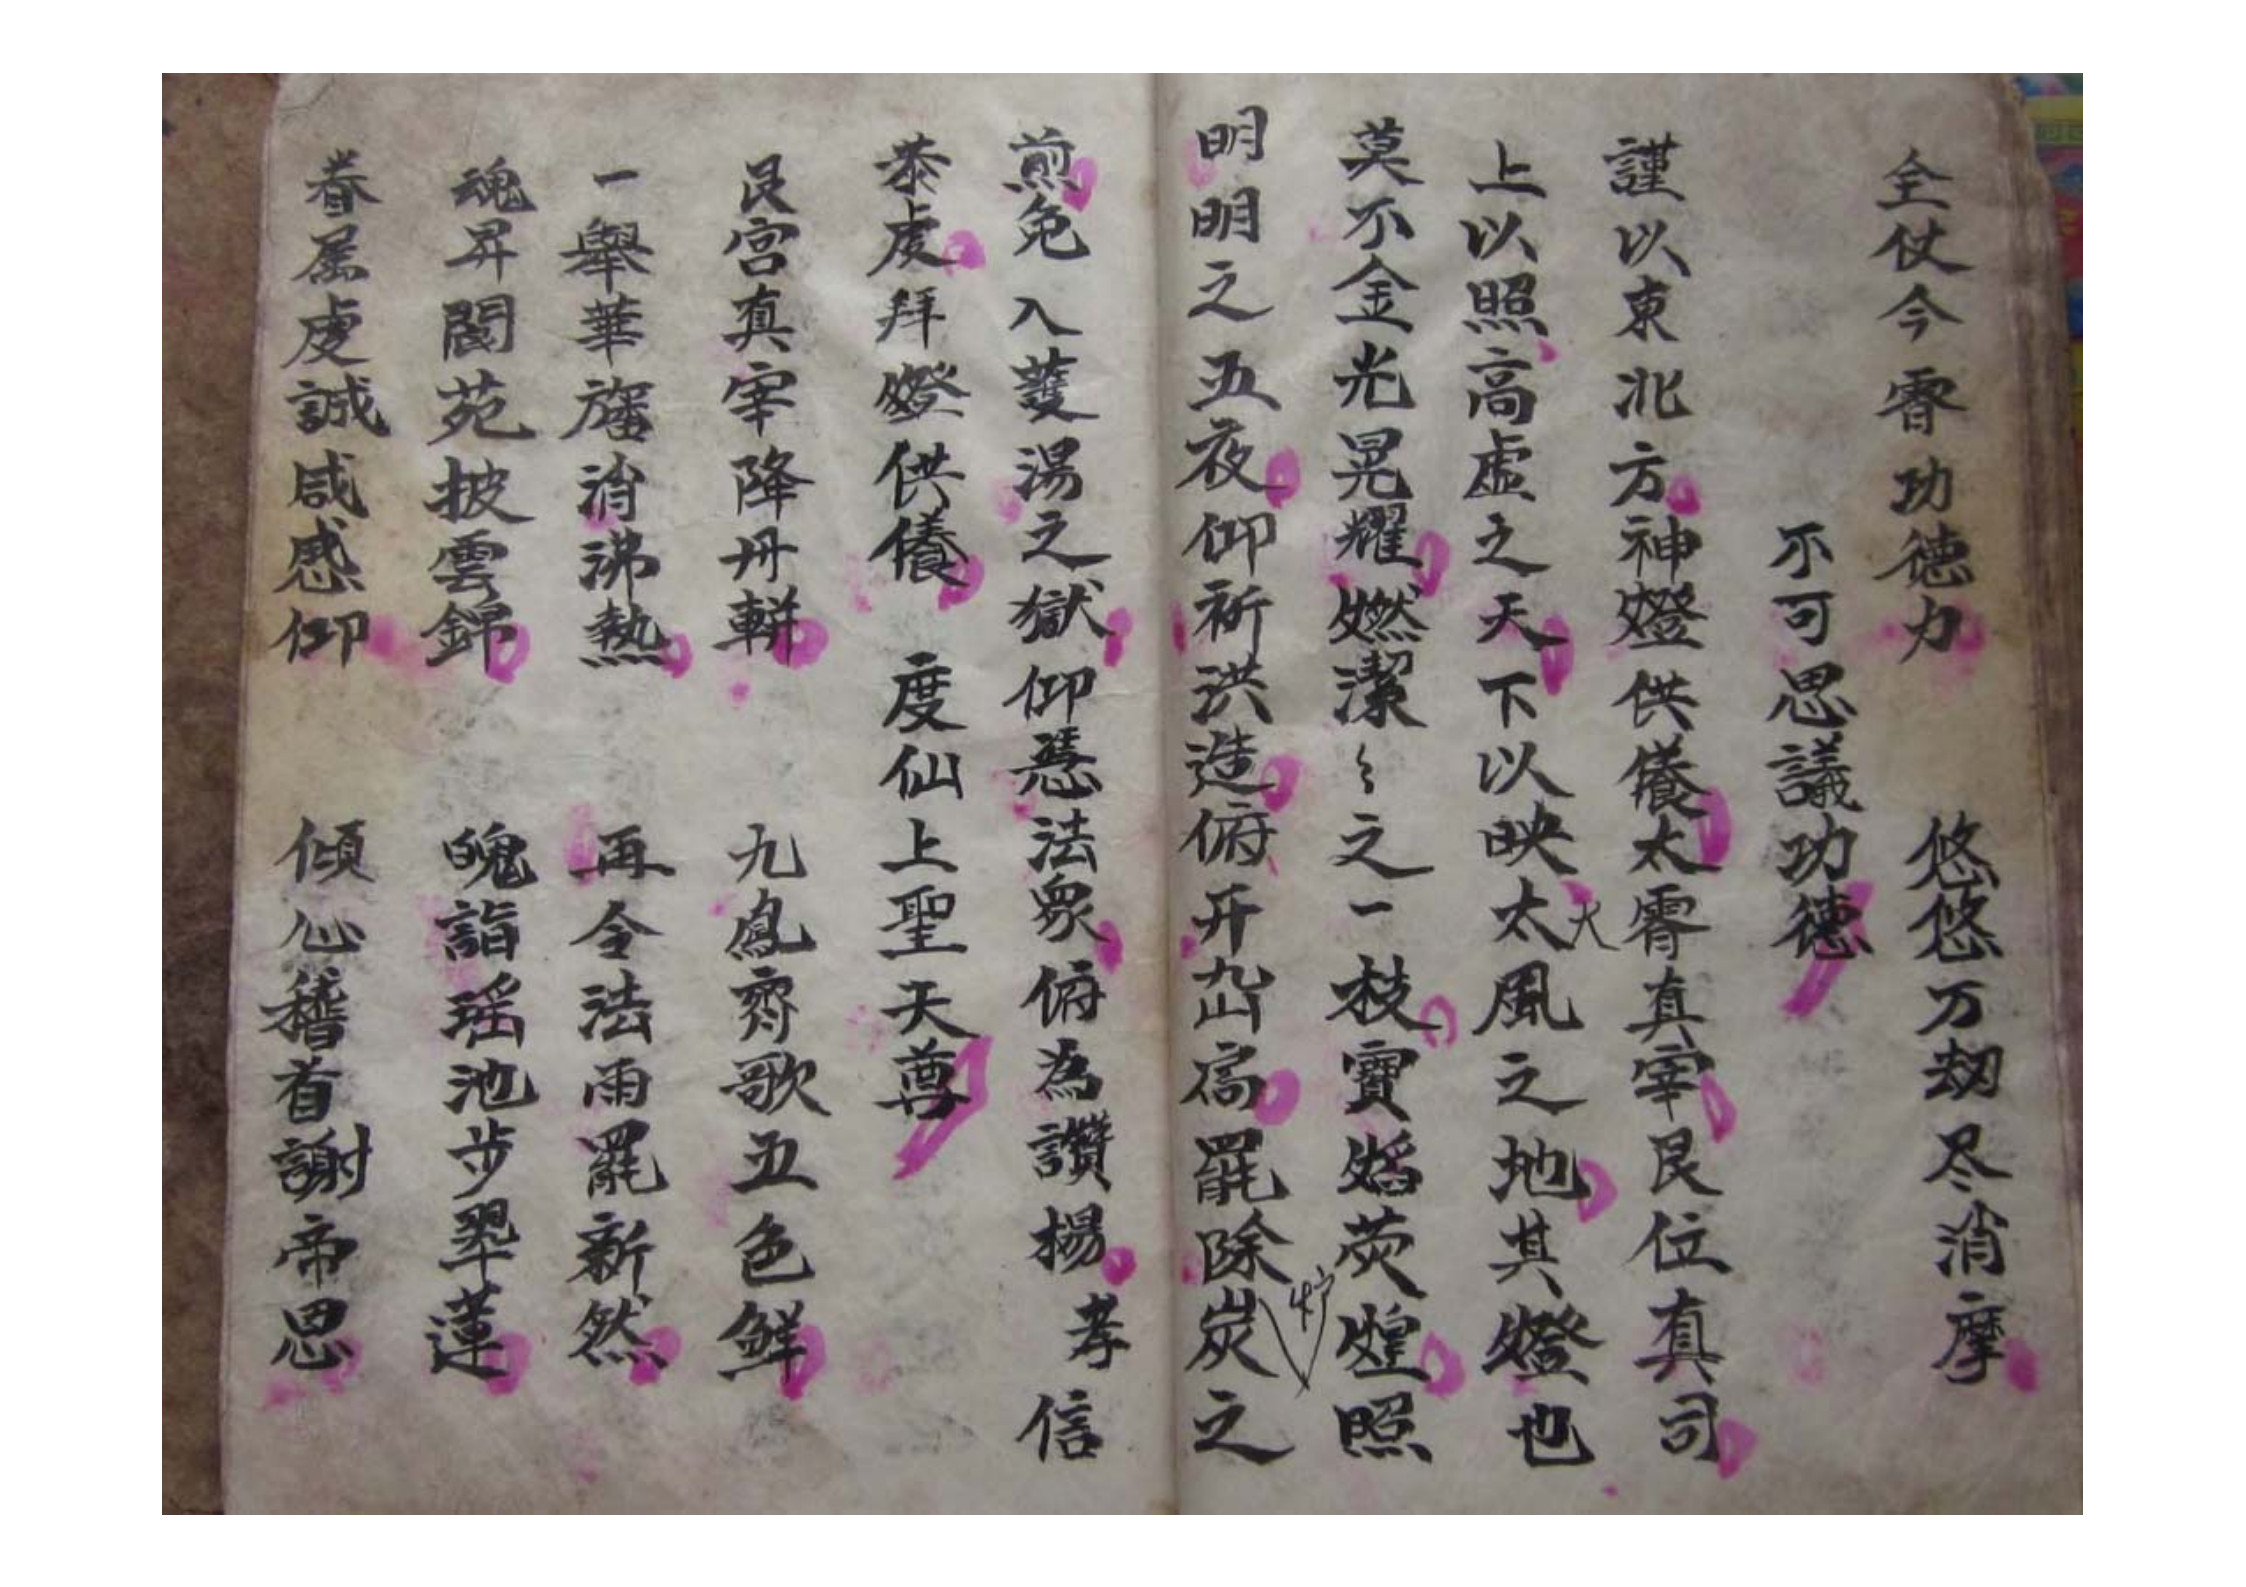 全仗今霄功德力　悠悠万劫尽消摩
不可思議功德
謹以東北方神燈供養太霄真宰艮位真司
上以照高虛之天下以映太大風之地其燈也
莫不金光晃耀燃潔〻之一枝寶焰荧煌照
明明之五夜仰祈洪造俯开九幽高罷除炭炉之
煎免入䕶湯之獄仰慈法眾俯為讚揚孝信
恭虔拜燈供養　度仙上聖天尊
艮宮真宰降丹軿　九鳳齊歌五色鮮
一舉華旛消沸熱　再令法雨罷新然
魂昇閬苑披雲錦　魄詣瑤池步翠蓮
眷属虔誠咸感仰　傾心稽首謝帝恩